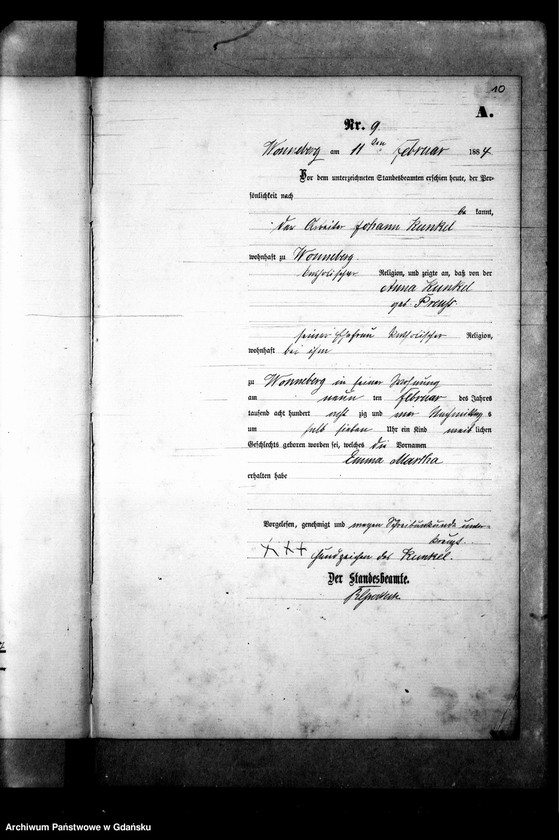 10
A.
Nr. 9.
Wonneberg am 11ten Februar 1884
Vor dem unterzeichneten Standesbeamten erschien heute, der Per-
sönlichkeit nach
be kannt,
der Arbeiter Johann Kunkel
wohnhaft zu Wonneberg
katholischer Religion, und zeigte an, daß von der
Anna Kunkel
geb. Preuß
seiner Ehefrau katholischer Religion,
wohnhaft bei ihm
zu Wonneberg in seiner Wohnung
am neun ten Februar des Jahres
tausend acht hundert acht zig und vier Nachmittag s
um halb sieben Uhr ein Kind weib lichen
Geschlechts geboren worden sei, welches die Vornamen
Emma Martha
erhalten habe
Vorgelesen, genehmigt und wegen Schreibunkunde unter-
kreuzt.
+++ Handzeichen des Kunkel.
Der Standesbeamte.
Archiwum Państwowe w Gdańsku